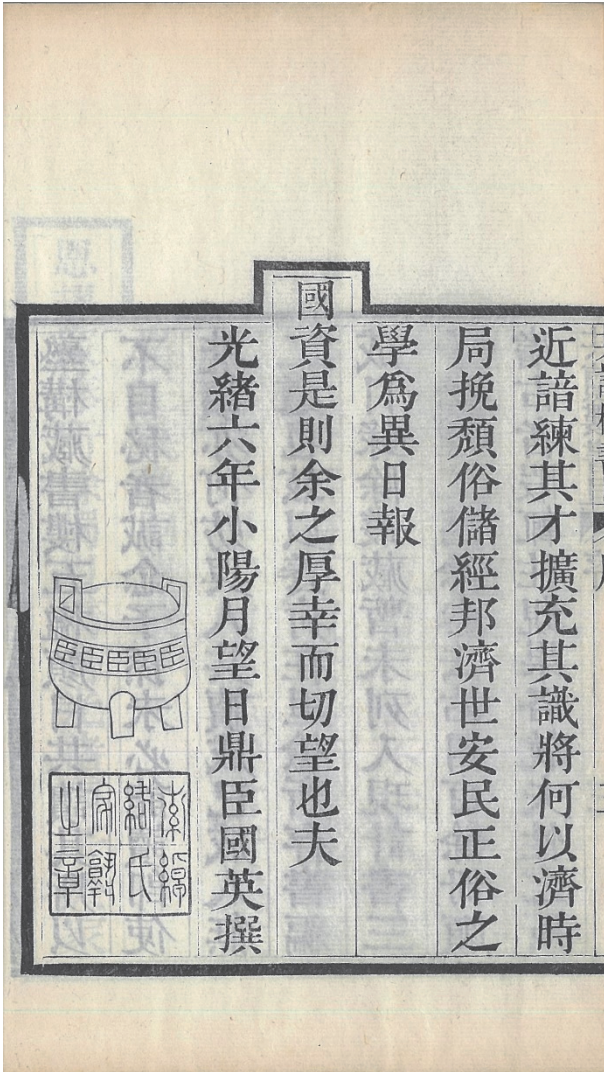 近諳練其才擴充其識將何以濟時
局挽頹俗儲經邦濟世安民正俗之
學爲異日報
國資是則余之厚幸而切望也夫
光緒六年小陽月望日鼎臣國英撰
臣臣臣臣臣